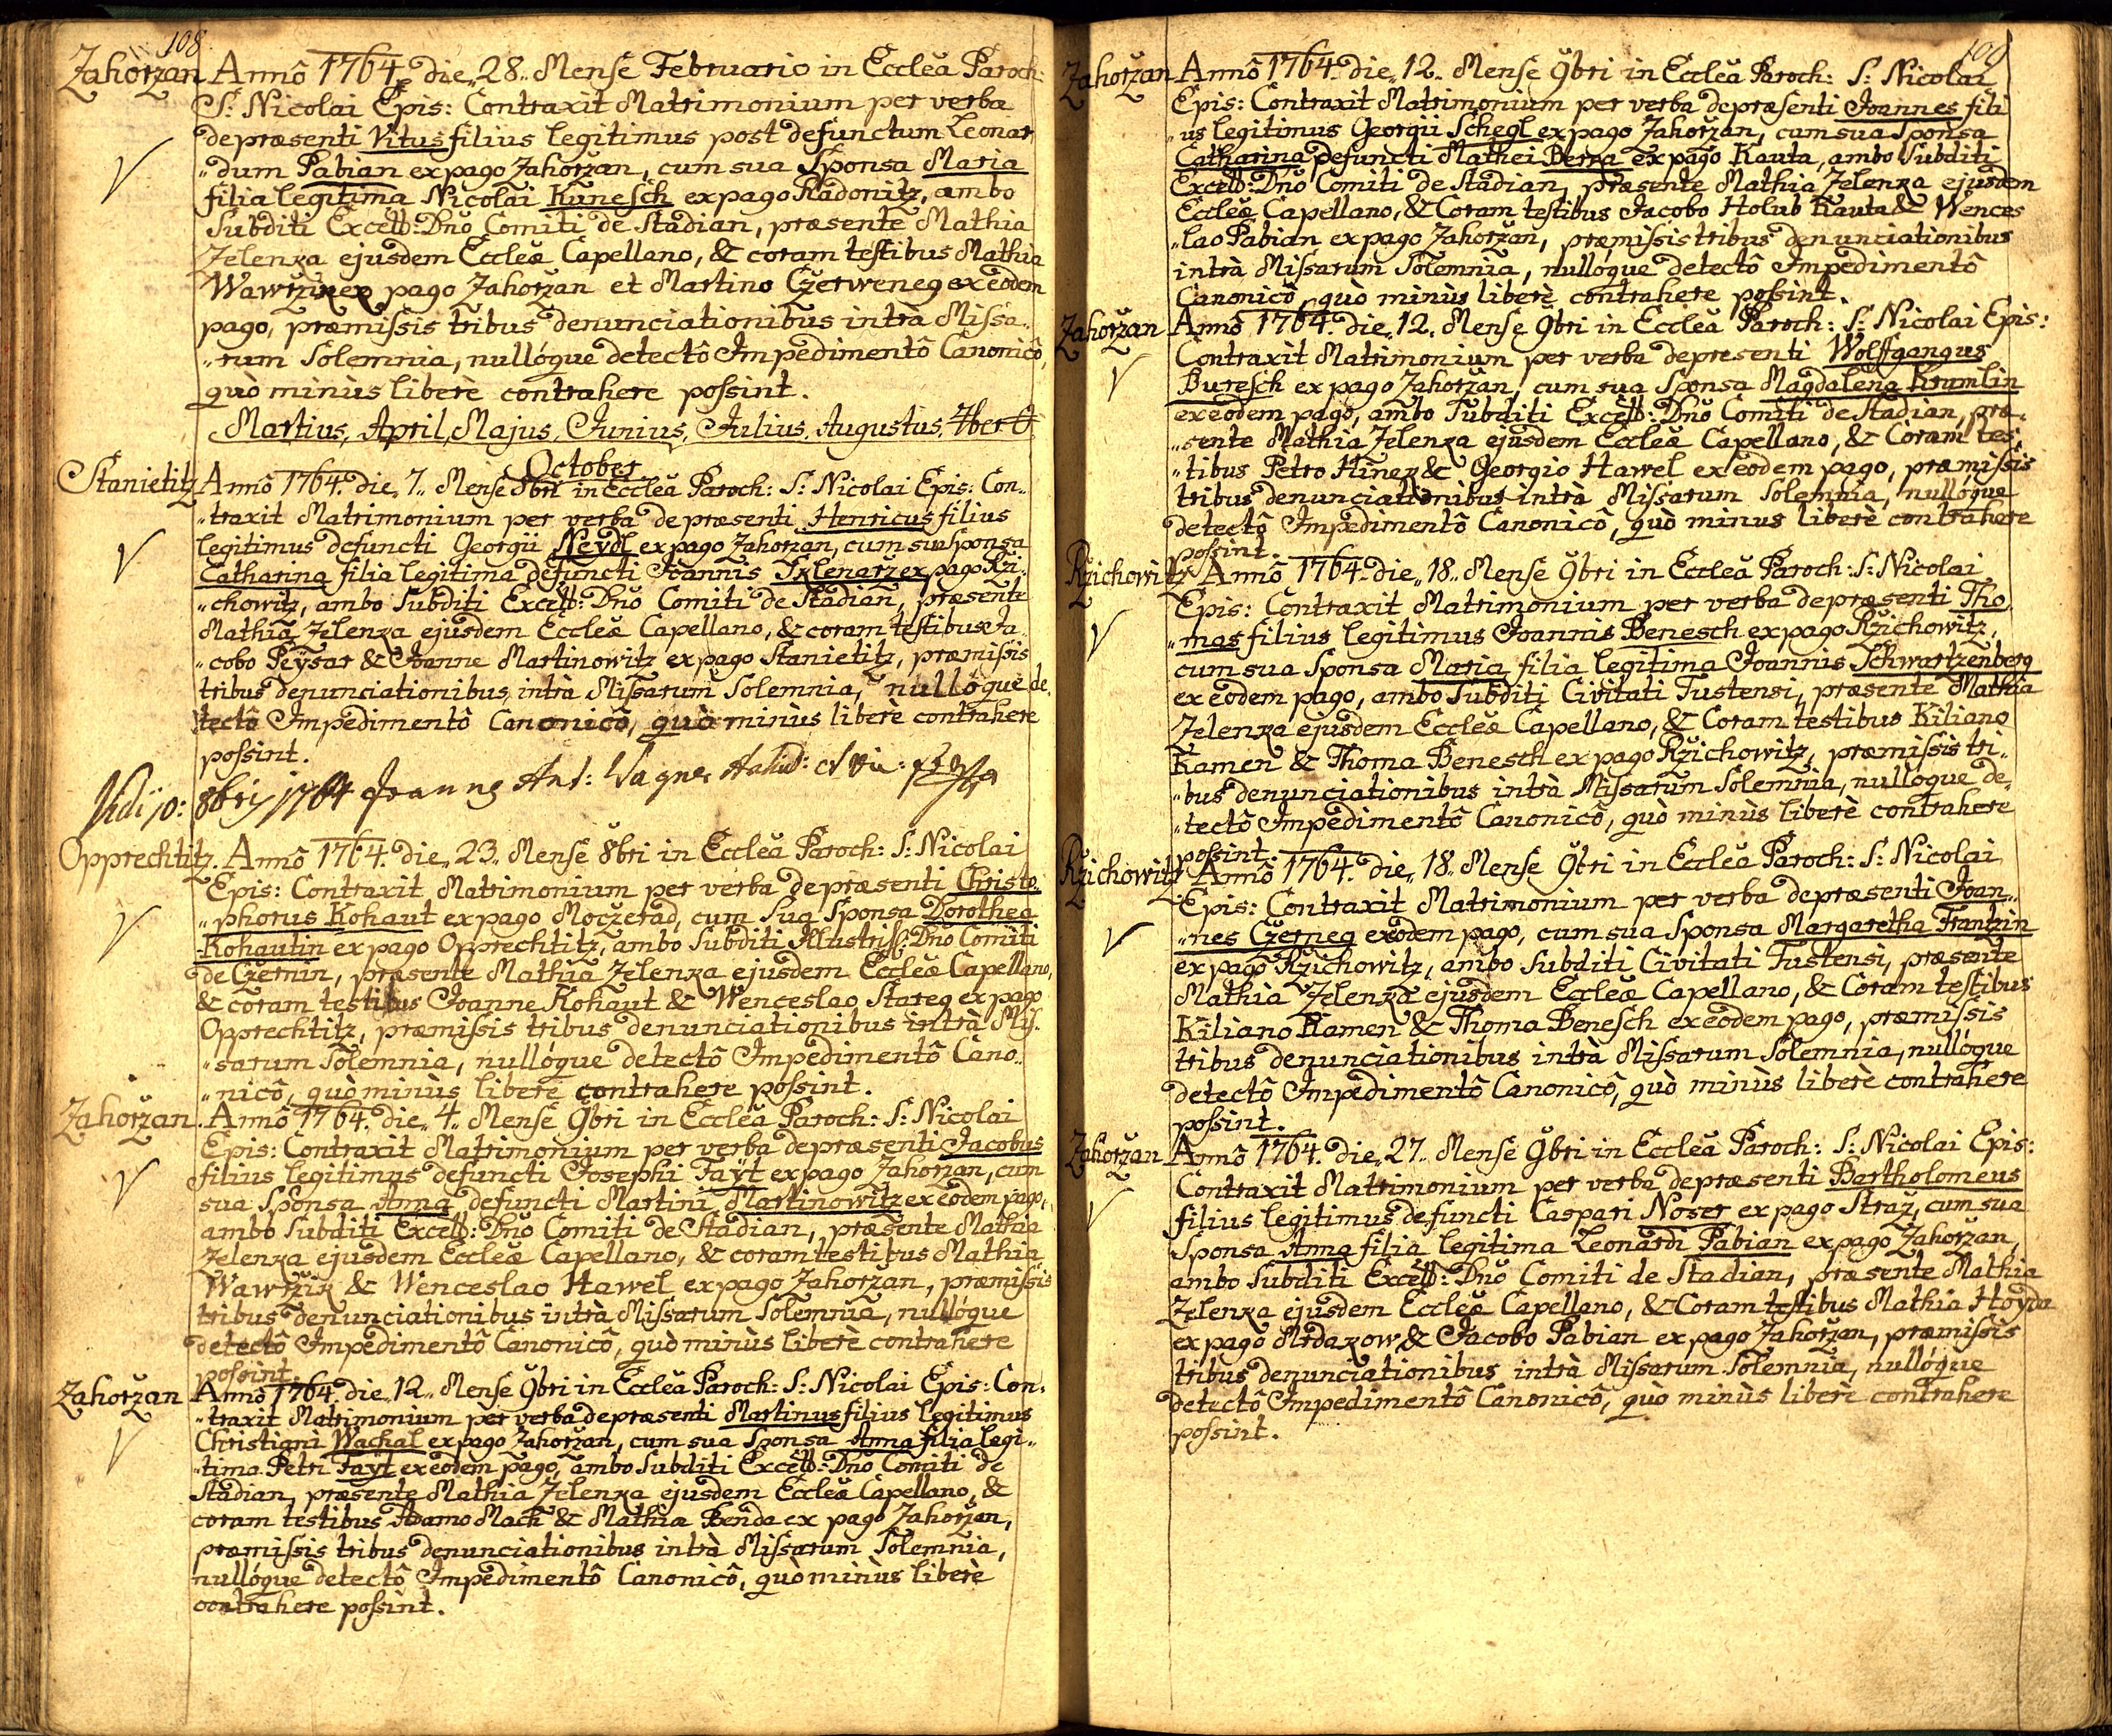 108
Zahoržan Annô 1764. die,, 28.. Mense Februario in Ecclâ Paroch:
S: Nicolai Epis: Contraxit Matrimonium per verba
de præsenti Vitus filius legitimus post defunctum Leonar
„dum Pabian ex pago Zahoržan, cum sua Sponsa Maria
filia legitima Nicolai Kunesch ex pago Radonitz, ambo
Subditi Excell: Dnõ Comiti de Stadian, præsente Mathia
Zelenka ejusdem Eccleæ Capellano, & coram testibus Mathia
Wawržik ex pago Zahoržan et Martino Czerweneg ex eodem
pago, præmissis tribus denunciationibus intrà Missa„
„rum Solemnia, nullóque detectô Impedimentô Canonicô,
quò minùs liberè contrahere possint.
Martius, April, Majus, Junius, Julius, Augustus, 7ber &
October
Stanietitz Annô 1764. die,, 7.. Mense 8bri in Ecclâ Paroch: S: Nicolai Epis: Con„
„traxit Matrimonium per verba de præsenti Henricus filius
legitimus defuncti Georgii Neydl ex pago Zahoržan, cum sua Sponsa
Catharina filia legitima defuncti Joannis Sklenarz ex pago Rži„
„chowitz, ambo Subditi Excell: Dnõ Comiti de Stadian, præsente
Mathia Zelenka ejusdem Eccleæ Capellano, & coram testibus Ja„
„cobo Peÿsar & Joanne Martinowitz ex pago Stanietitz, præmissis
tribus denunciationibus intrà Missarum Solemnia, nullóque de„
tectô Impedimentô Canonicô, quò minùs liberè contrahere
possint.
Vidi 10: 8bris 1764 Joannes Ant: Wagner
Opprechtitz. Annô 1764. die,, 23.. Mense 8bri in Ecclâ Paroch: S: Nicolai
Epis: Contraxit Matrimonium per verba de præsenti Christo„
„phorus Kohaut ex pago Moczerad, cum sua Sponsa Dorothea
Kohautin ex pago Opprechtitz, ambo Subditi Illustriss: Dnõ Comiti
de Czernin, præsente Mathia Zelenka ejusdem Eccleæ Capellano,
& coram testibus Joanne Kohaut & Wenceslao Stareg ex pago
Opprechtitz, præmissis tribus denunciationibus intrà Mis„
„sarum Solemnia, nullóque detectô Impedimentô Cano„
„nicô, quò minùs liberè contrahere possint.
Zahoržan. Annô 1764. die,, 4.. Mense 9bri in Ecclâ Paroch: S: Nicolai
Epis: Contraxit Matrimonium per verba de præsenti Jacobus
filius legitimus defuncti Josephi Tayt ex pago Zahoržan, cum
sua Sponsa Anna defuncti Martini Martinowitz ex eodem pago,
ambo Subditi Excell: Dnõ Comiti de Stadian, præsente Mathia
Zelenka ejusdem Eccleæ Capellano, & coram testibus Mathia
Wawržik & Wenceslao Hawel ex pago Zahoržan, præmissis
tribus denunciationibus intrà Missarum Solemnia, nullóque
detectô Impedimentô Canonicô, quò minùs liberè contrahere
possint.
Zahoržan Annô 1764. die,, 12.. Mense 9bri in Ecclâ Paroch: S: Nicolai Epis: Con„
„traxit Matrimonium per verba de præsenti Martinus filius legitimus
Christiani Wachal ex pago Zahoržan, cum sua Sponsa Anna filia legi„
„tima Petri Tayt ex eodem pago, ambo Subditi Excell: Dnõ Comiti de
Stadian, præsente Mathia Zelenka ejusdem Eccleæ Capellano, &
coram testibus Adamo Mach & Mathia Benda ex pago Zahoržan,
præmissis tribus denunciationibus intrà Missarum Solemnia,
nullóque detectô Impedimentô Canonicô, quò minùs liberè
contrahere possint.
109
Zahoržan Annô 1764. die,, 12.. Mense 9bri in Ecclâ Paroch: S: Nicolai
Epis: Contraxit Matrimonium per verba de præsenti Joannes fili
„us legitimus Georgii Schegl ex pago Zahoržan, cum sua Sponsa
Catharina defuncti Mathei Berka ex pago Kauta, ambo Subditi
Excell: Dnõ Comiti de Stadian, præsente Mathia Zelenka ejusdem
Eccleæ Capellano, & Coram testibus Jacobo Holub Kauta & Wences
„lao Pabian ex pago Zahoržan, præmissis tribus denunciationibus
intrà Missarum Solemnia, nullóque detectô Impedimentô
Canonicô, quò minùs liberè contrahere possint.
Zahoržan Annô 1764. die,, 12.. Mense 9bri in Ecclâ Paroch: S: Nicolai Epis:
Contraxit Matrimonium per verba de presenti Wolffgangus
Buresch ex pago Zahoržan, cum sua Sponsa Magdalena Krumlin
ex eodem pago, ambo Subditi Excell: Dnõ Comiti de Stadian, præ„
„sente Mathia Zelenka ejusdem Eccleæ Capellano, & Coram tes„
„tibus Petro Hinek & Georgio Hawel ex eodem pago, præmissis
tribus denunciationibus intrà Missarum Solemnia, nullóque
detectô Impedimentô Canonicô, quò minus liberè contrahere
possint.
Ržichowitz Annô 1764. die,, 18.. Mense 9bri in Ecclâ Paroch: S: Nicolai
Epis: Contraxit Matrimonium per verba de præsenti Tho„
„mas filius legitimus Joannis Benesch ex pago Ržichowitz,
cum sua Sponsa Maria filia legitima Joannis Schwartzenberg
ex eodem pago, ambo Subditi Civitati Tustensi, præsente Mathia
Zelenka ejusdem Eccleæ Capellano, & Coram testibus Kiliano
Kamen & Thoma Benesch ex pago Ržichowitz, præmissis tri„
„bus denunciationibus intrà Missarum Solemnia, nullóque de„
„tectô Impedimentô Canonicô, quò minùs liberè contrahere
possint.
Ržichowitz Annô 1764. die,, 18.. Mense 9bri in Ecclâ Paroch: S: Nicolai
Epis: Contraxit Matrimonium per verba de præsenti Joan„
„nes Czerneg ex eodem pago, cum sua Sponsa Margaretha Frantzin
ex pago Ržichowitz, ambo Subditi Civitati Tustensi, præsente
Mathia Zelenka ejusdem Eccleæ Capellano, & Coram testibus
Kiliano Kamen & Thoma Benesch ex eodem pago, præmissis
tribus denunciationibus intrà Missarum Solemnia, nullóque
detectô Impedimentô Canonicô, quò minùs liberè contrahere
possint.
Zahoržan Annô 1764. die,, 27.. Mense 9bri in Ecclâ Paroch: S: Nicolai Epis:
Contraxit Matrimonium per verba de præsenti Bartholomeus
filius legitimus defuncti Caspari Noser ex pago Straž, cum sua
Sponsa Anna filia legitima Leonardi Pabian ex pago Zahoržan,
ambo Subditi Excell: Dnõ Comiti de Stadian, præsente Mathia
Zelenka ejusdem Eccleæ Capellano, & Coram testibus Mathia Hoyda
ex pago Mrdakow & Jacobo Pabian ex pago Zahoržan, præmissis
tribus denunciationibus intrà Missarum Solemnia, nullóque
detectô Impedimentô Canonicô, quò minùs liberè contrahere
possint.